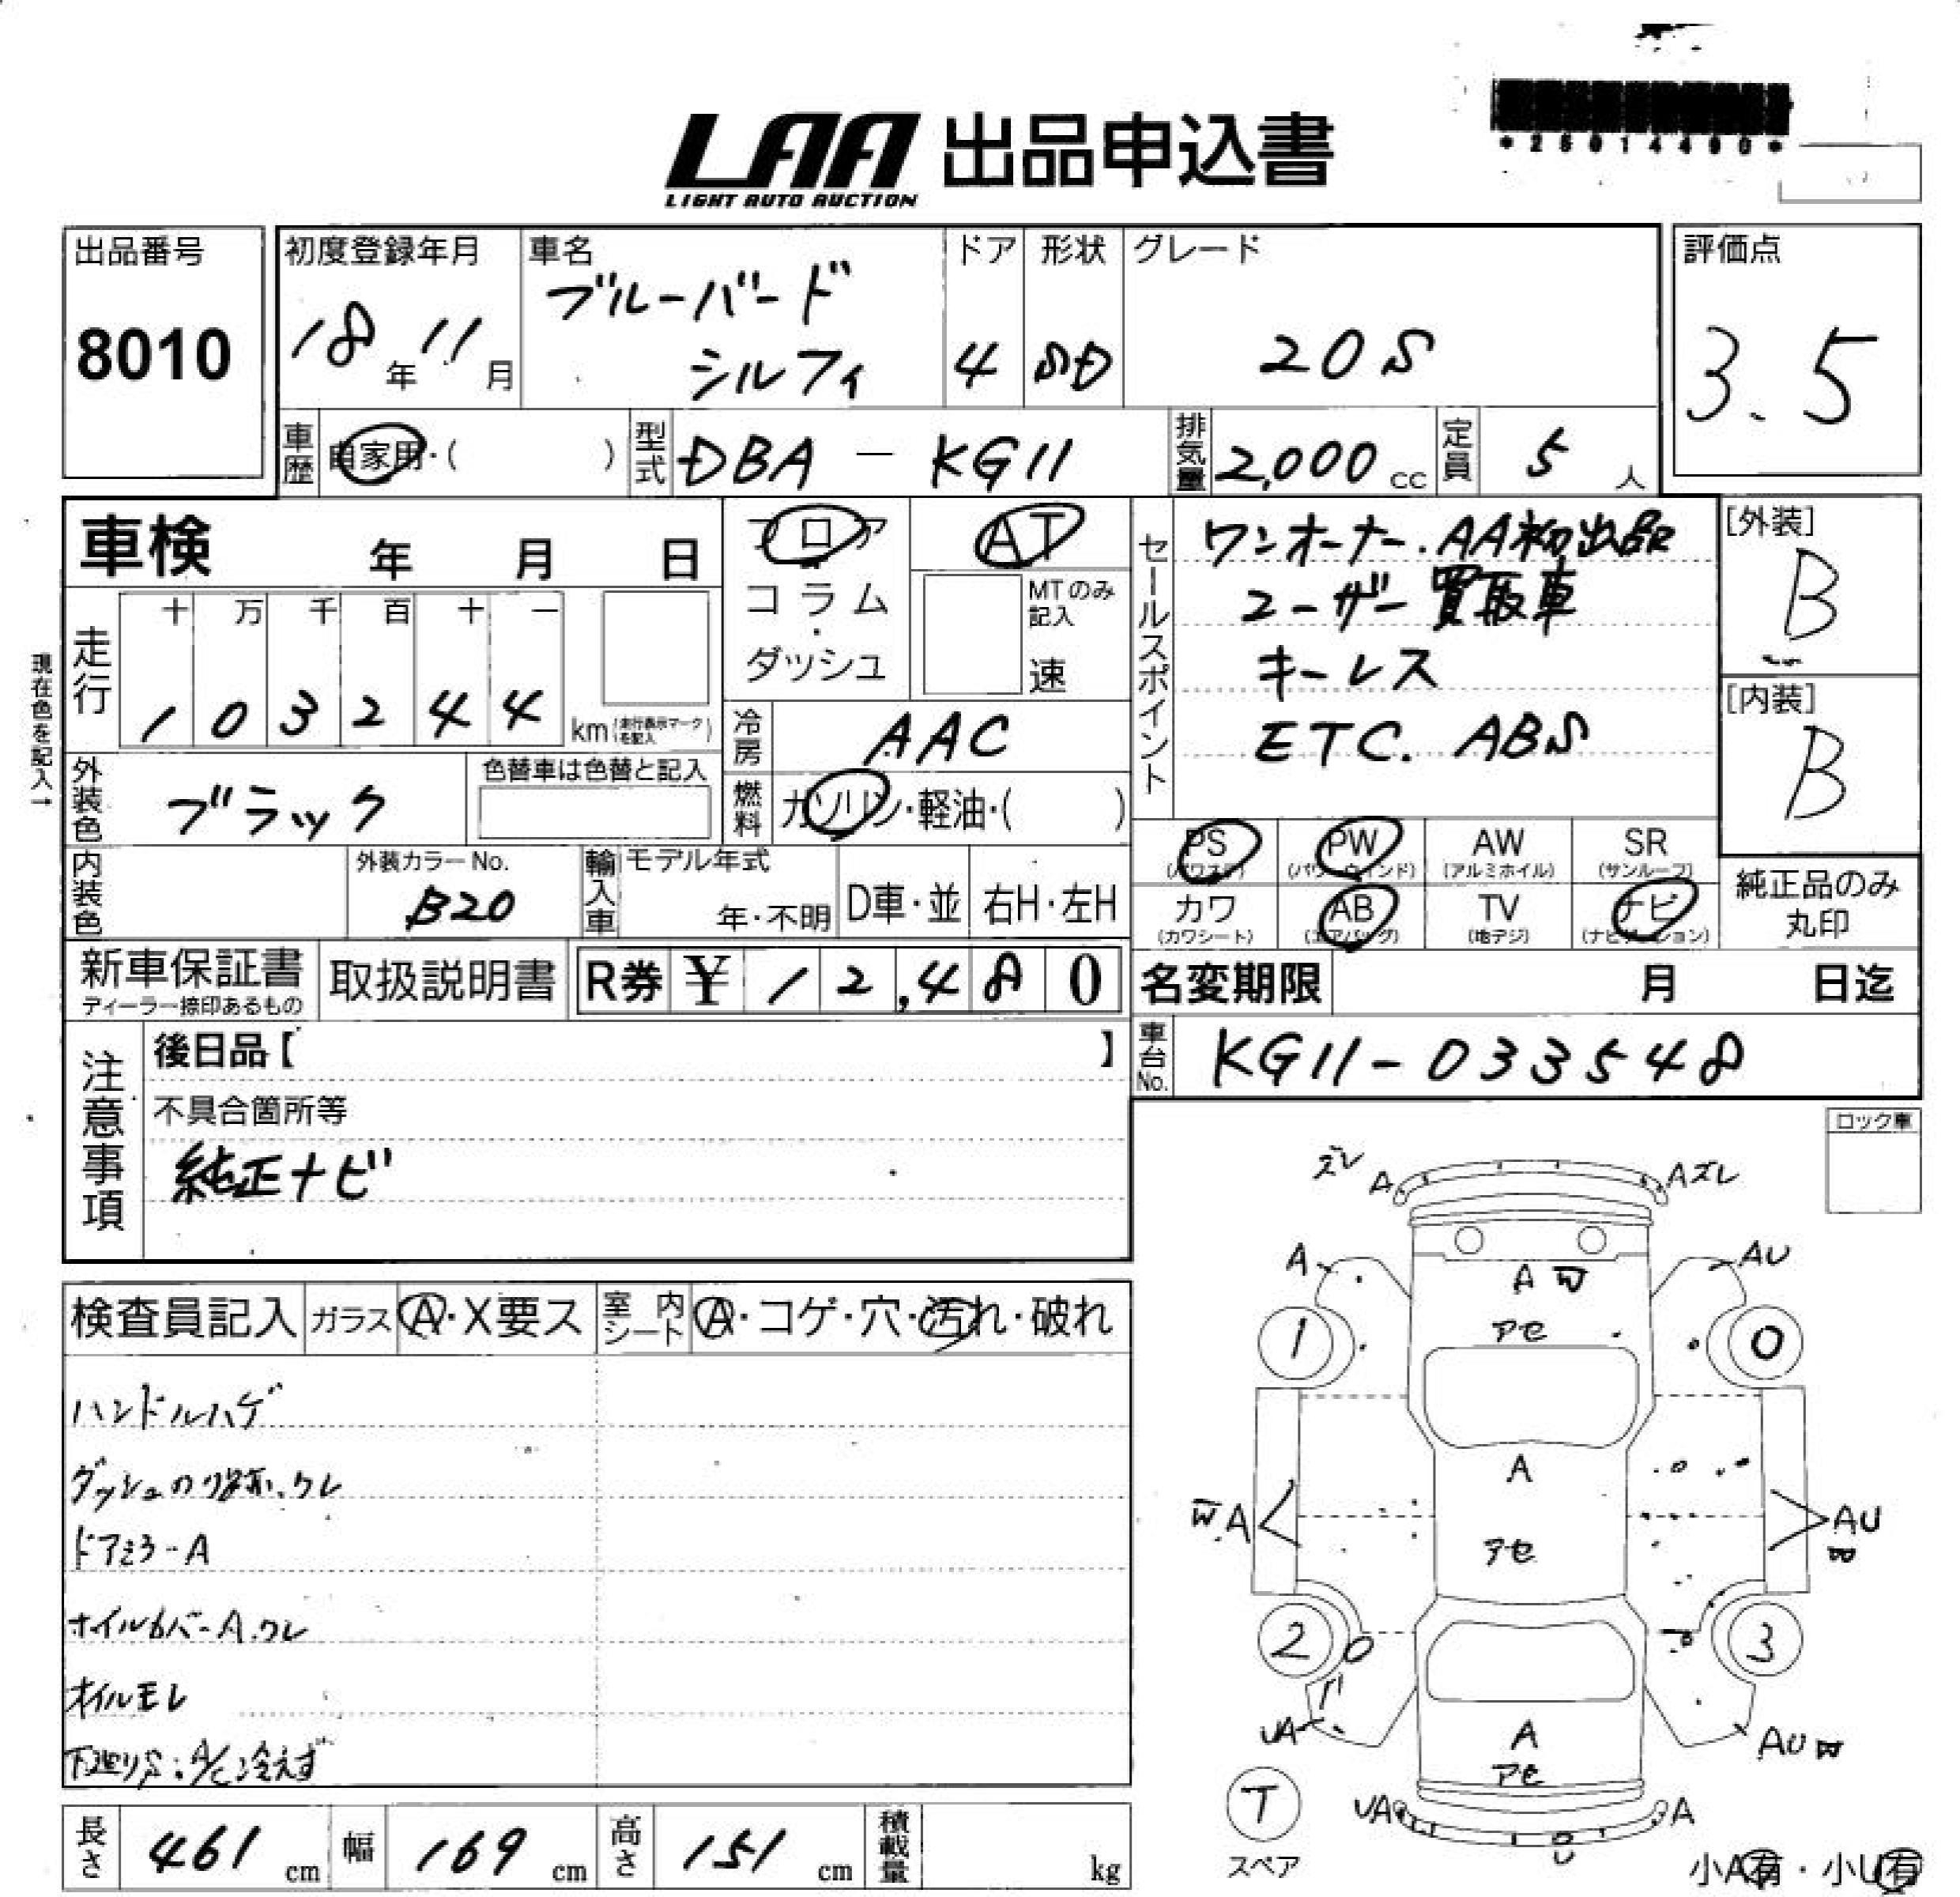 LAA 出品申込書
LIGHT AUTO AUCTION
出品番号
8010
初度登録年月
18年11月
車名
ブルーバード
シルフィ
ドア
4
形状
SD
グレード
20S
評価点
3.5
車歴
自家用・( )
型式
DBA-KG11
排気量
2,000 cc
定員
5人
車検 年 月 日
フロア
コラム
・
ダッシュ
AT
MTのみ
記入
速
セールスポイント
ワンオーナー.AA初出品
ユーザー買取車
キーレス
ETC. ABS
[外装]
B
[内装]
B
現在色を記入→
走行
十 万 千 百 十 一
1 0 3 2 4 4 km(走行表示マークを記入)
冷房
AAC
外装色
ブラック
色替車は色替と記入
燃料
ガソリン・軽油・( )
内装色
外装カラーNo.
B20
輸入車
モデル年式
年・不明
D車・並
右H・左H
PS
(パワステ)
PW
(パワーウインド)
AW
(アルミホイル)
SR
(サンルーフ)
カワ
(カワシート)
AB
(エアバッグ)
TV
(地デジ)
ナビ
(ナビゲーション)
純正品のみ
丸印
新車保証書
ディーラー捺印あるもの
取扱説明書
R券 ¥ 12,480
名変期限 月 日迄
車台No.
KG11-033548
注意事項
後日品【 】
不具合箇所等
純正ナビ
ロック車
検査員記入 ガラス A・X要ス 室内シート A・コゲ・穴・汚れ・破れ
ハンドルハゲ
ダッシュのり跡、ワレ
ドアミラーA
ホイルカバーA.ワレ
オイルモレ
下廻りS:A/C冷えず
ズレ A
Aズレ
A
AU
A W
アセ
1
0
A
W A
AU
W
アセ
2
3
UA
AU W
A
アセ
T
スペア
UA
U
A
小A有・小U有
長さ 461 cm 幅 169 cm 高さ 151 cm 積載量 kg